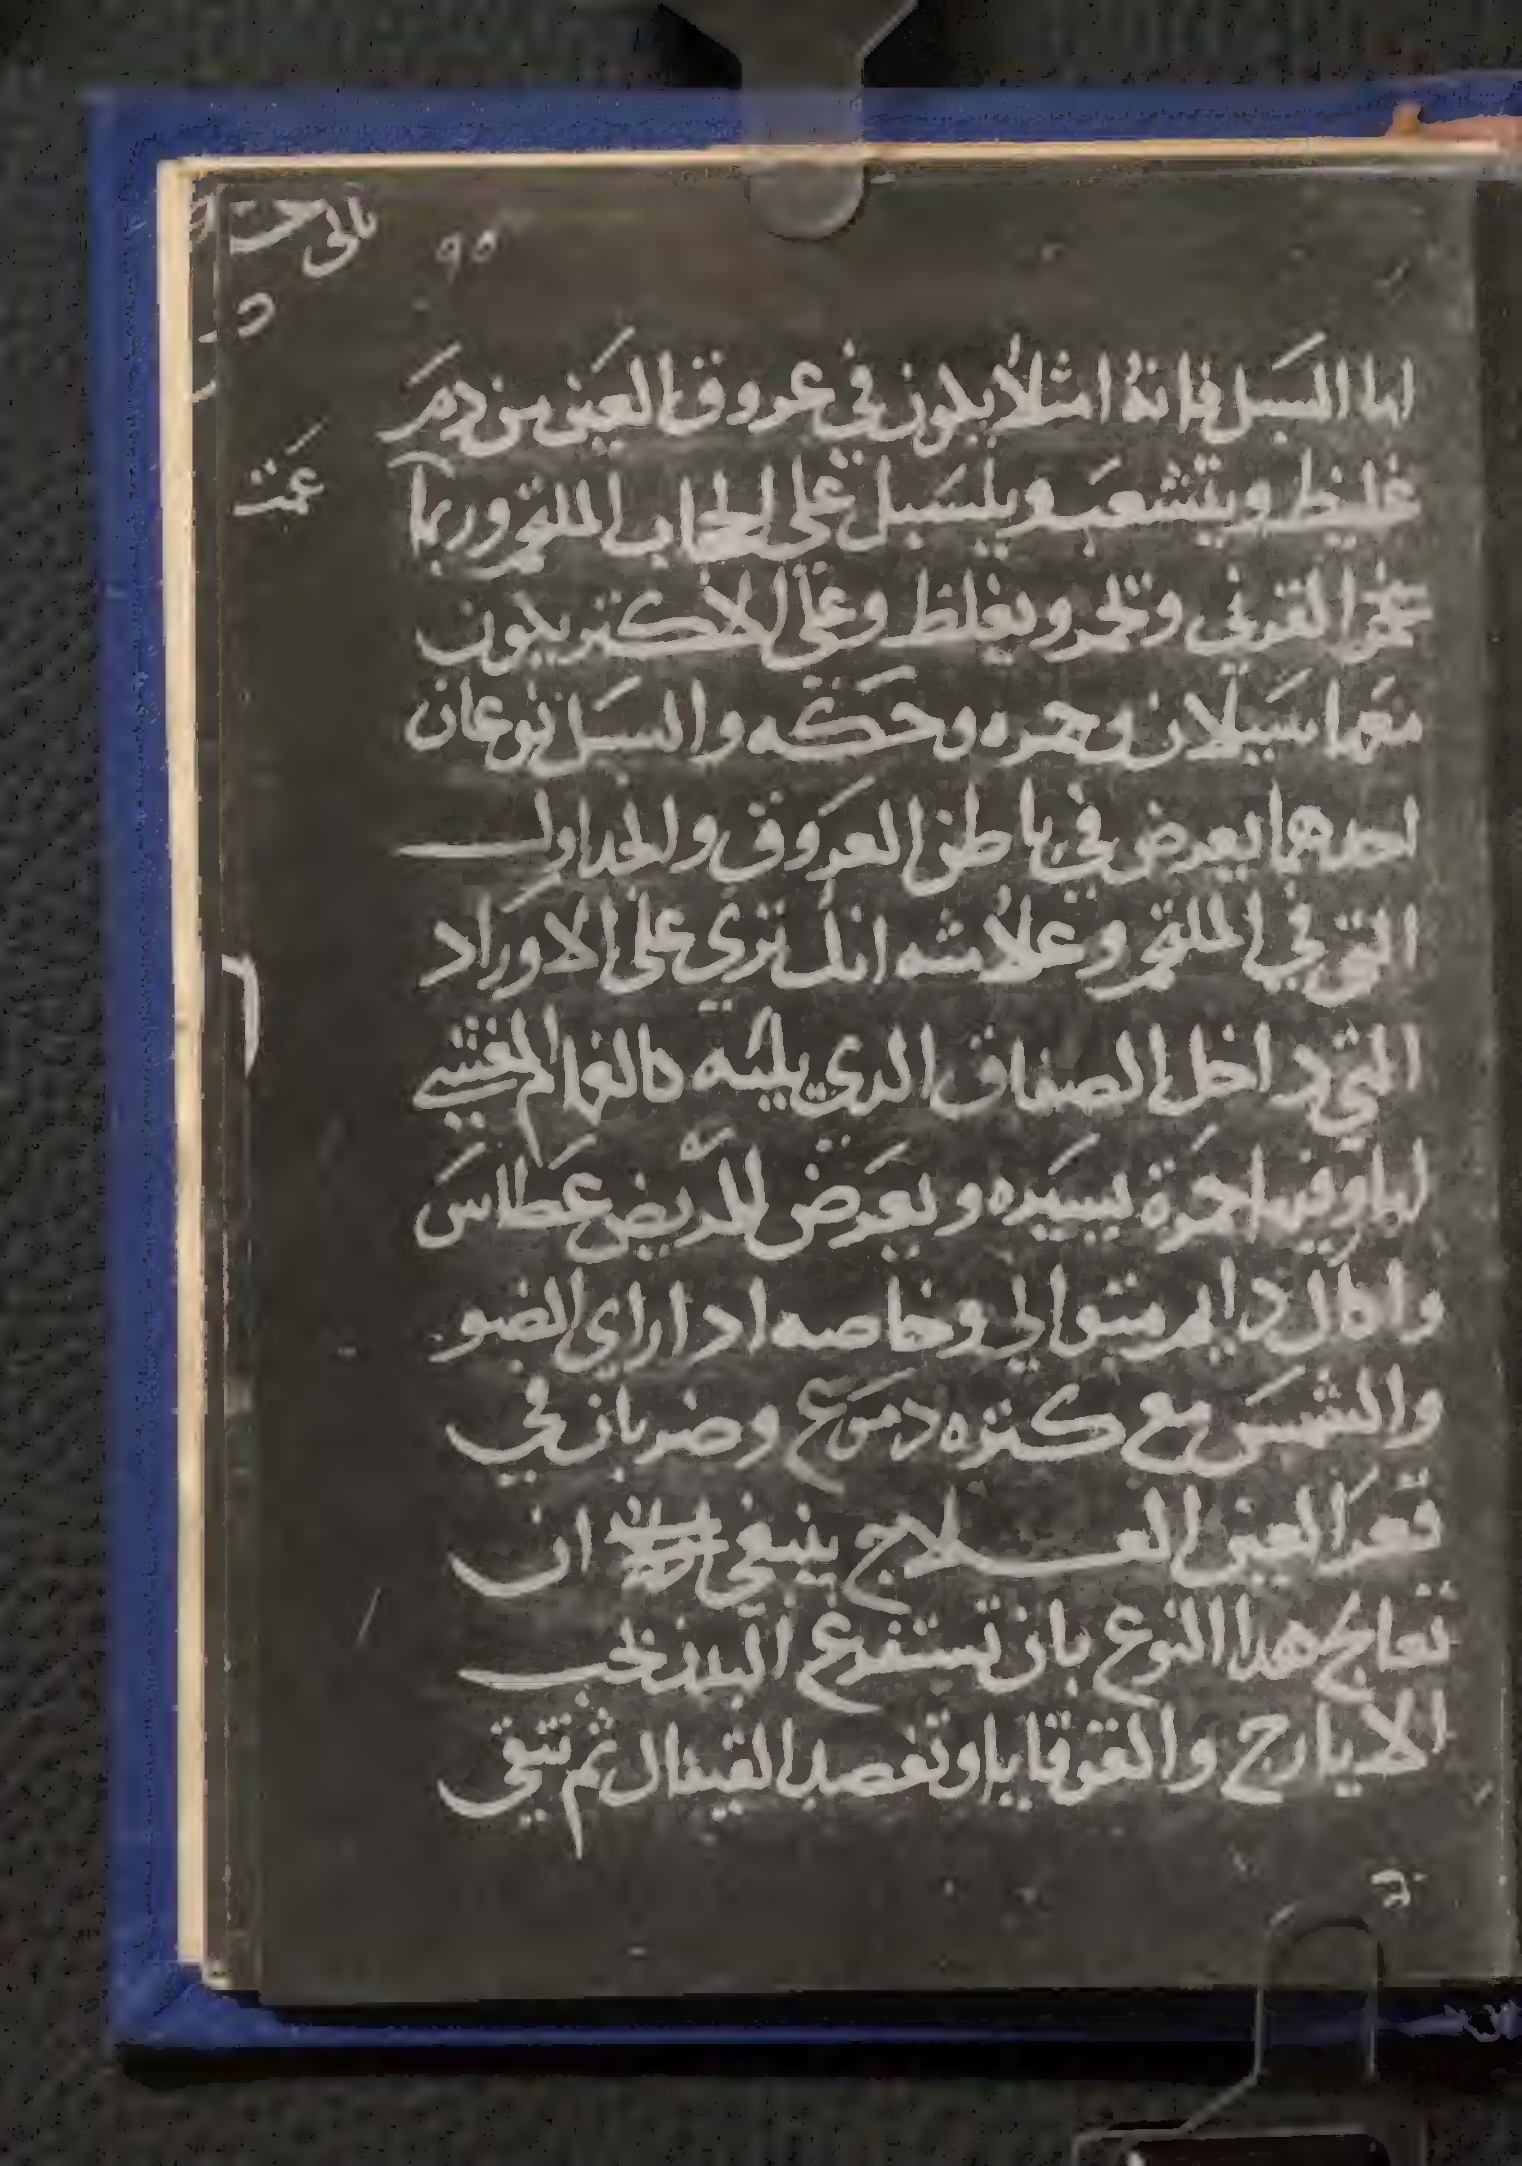 ٩٥
اما السبل فانهُ امتلأ يكون في عروق العين من دم
غليظ ويتشعب ويلسَبل على الحجاب الملتحم وربما
القرني وتحمر ويغلظ وعلى الاكتر يكون
معها سَيلان وحمره وحكه والسبَل نوعان
احدهما يعرض في باطن العَروق والجداول
التي في الملتحم وعلامته انك تري على الاوراد
التي داخل الصفاق الدي يليه كالغمام
لها وفيها حمرة يسيَره ويعَرض للمريض عَطاسَ
دايم متوالي وخاصه ادا راي الضو
والشمسَ مع كتره دموع وضربان في
قعر العين العلاج ينبغي ان
تعالج هدا النوع بان تستفرغ البدن بحب
الايارج والقوقايا وتفصد القيفال ثم تنقي